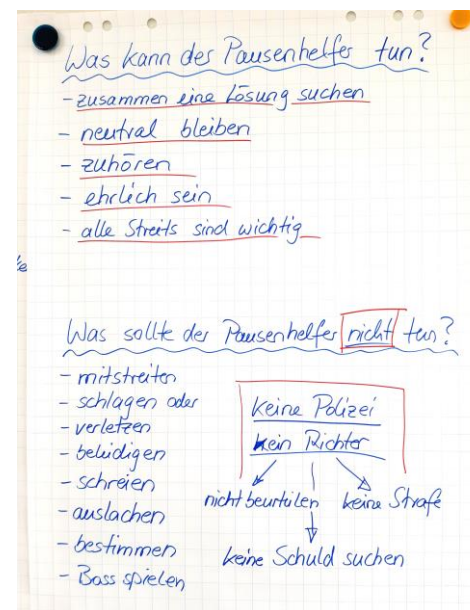 Was kann der Pausenhelfer tun?
- zusammen eine Lösung suchen
- neutral bleiben
- zuhören
- ehrlich sein
- alle Streits sind wichtig
Was sollte der Pausenhelfer nicht tun?
- mitstreiten
- schlagen oder
- verletzen
- beleidigen
- schreien
- auslachen
- bestimmen
- Boss spielen
keine Polizei
kein Richter
nicht beurteilen
keine Strafe
keine Schuld suchen